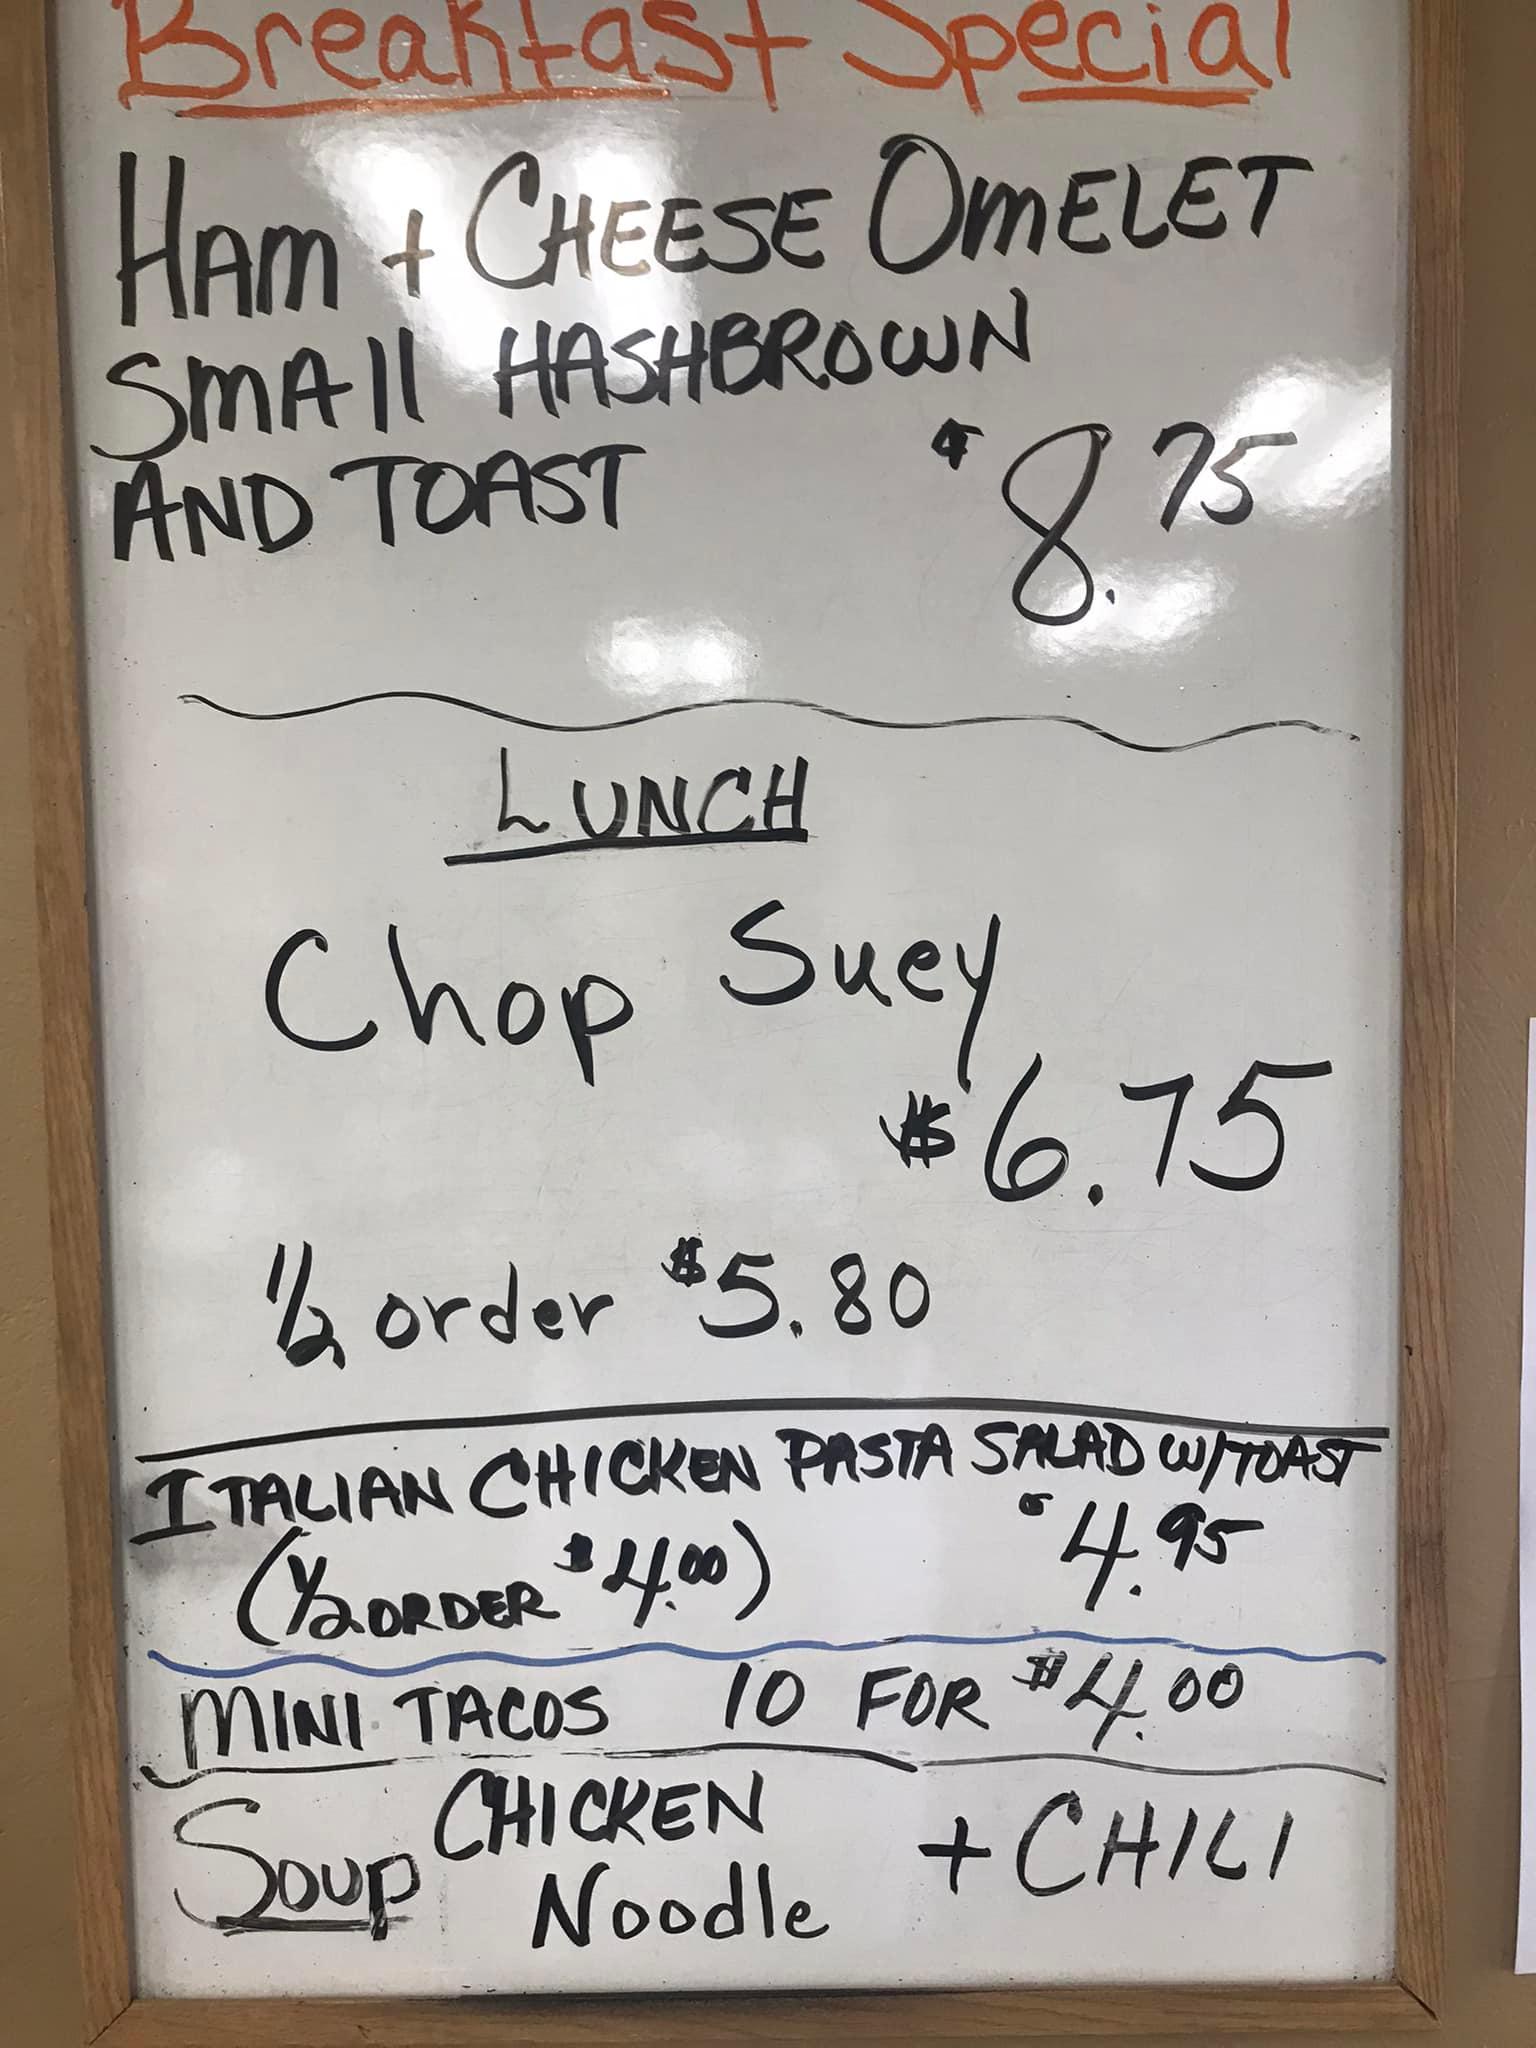 Breakfast Special
HAM + CHEESE OMELET
SMAll HASHBROWN
AND TOAST $8.75
LUNCH
Chop Suey
$6.75
1/2 order $5.80
ITALIAN CHICKEN PASTA SALAD W/TOAST
(1/2 ORDER $4.00) $4.95
MINI TACOS 10 FOR $4.00
Soup CHICKEN + CHILI
Noodle